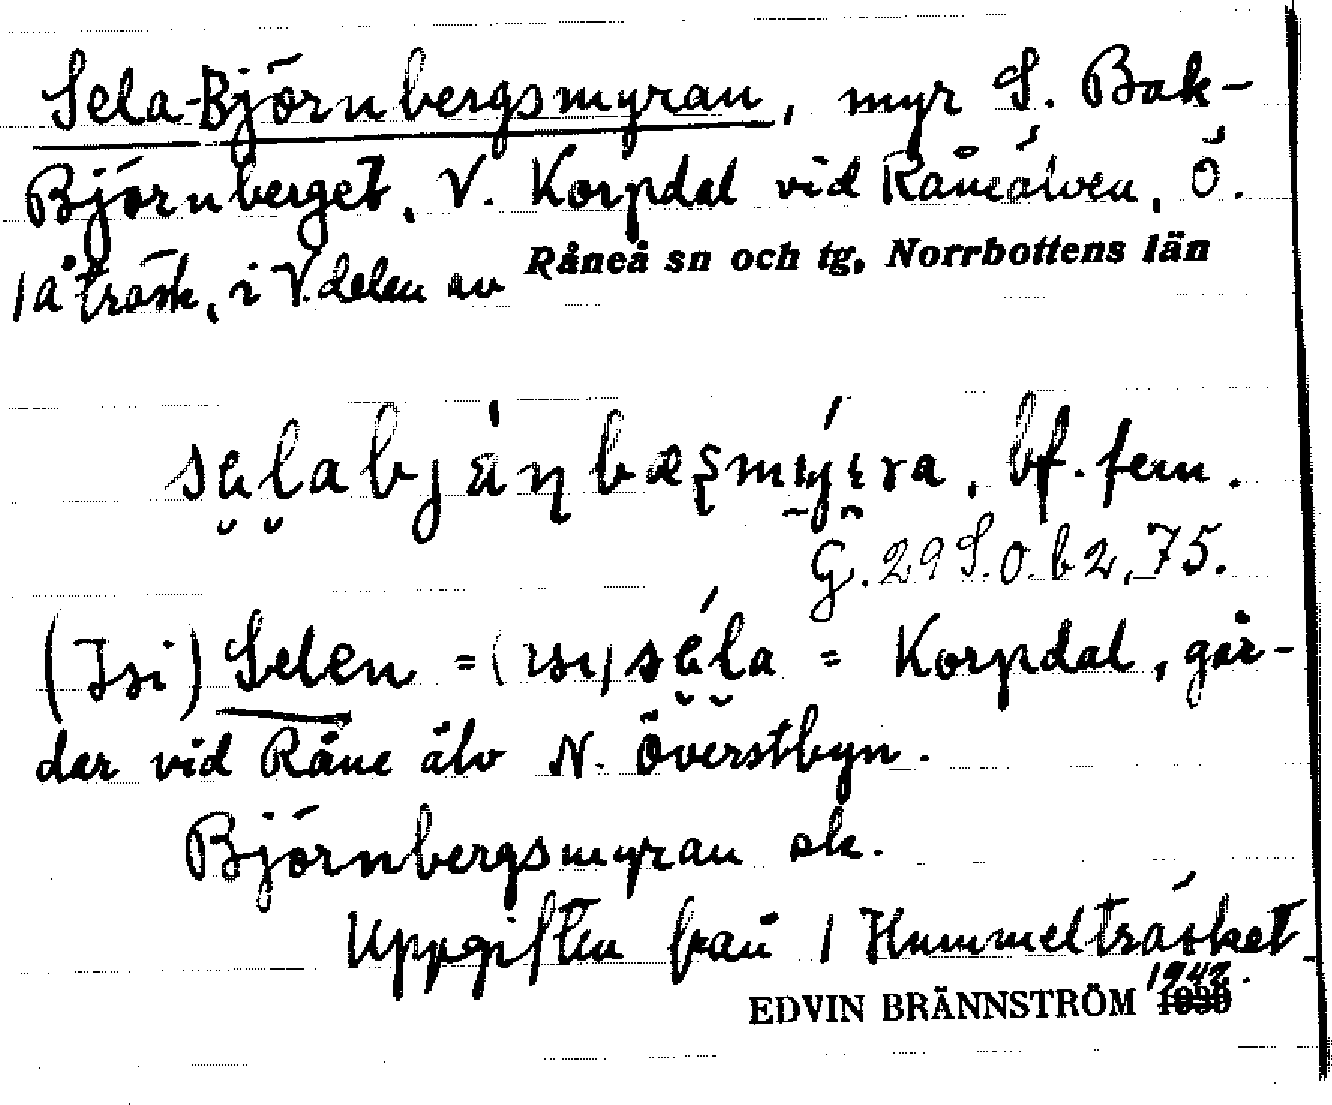 Sela-Björnbergsmyran, myr S. Bak-
Björnberget, V. Korpdal vid Råneälven, Ö.
1 åträsk, i V. delen av Råneå sn och tg, Norrbottens län
bf. fem.
G. 29 S.O. b 2, 75.
(Isi) Selen = (ɪsɪ) = Korpdal, går-
dar vid Råne älv N. Överstbyn.
Björnbergsmyran sk.
Uppgiften från 1 Hummelträsket.
EDVIN BRÄNNSTRÖM 1942.